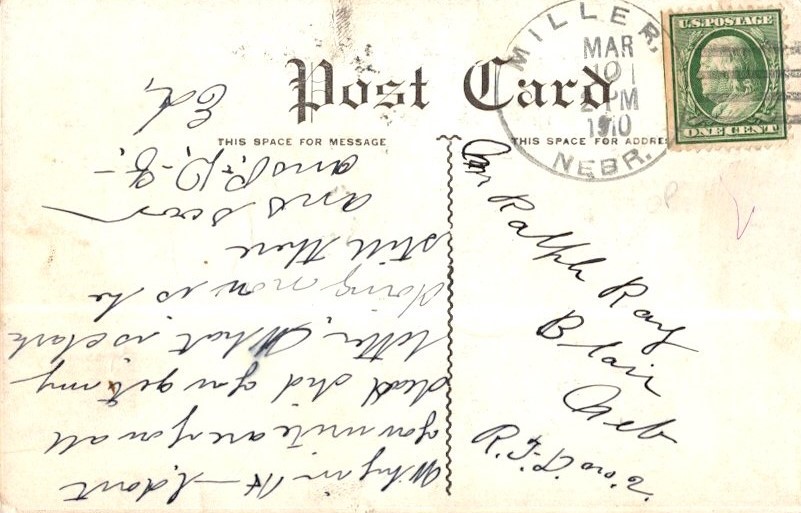 Post Card
THIS SPACE FOR MESSAGE
THIS SPACE FOR ADDRE
MILLER,
MAR
10
2 PM
1910
NEBR.
U.S. POSTAGE
ONE CENT
Mr Ralph Ray
Blair
Neb
R.F.D. no. 2.
Why in H— I dont
you write are you all
dead did you get my
letter. What is clark
doing now is he
still there
ans soon
ans P.D.Q.
Ed.